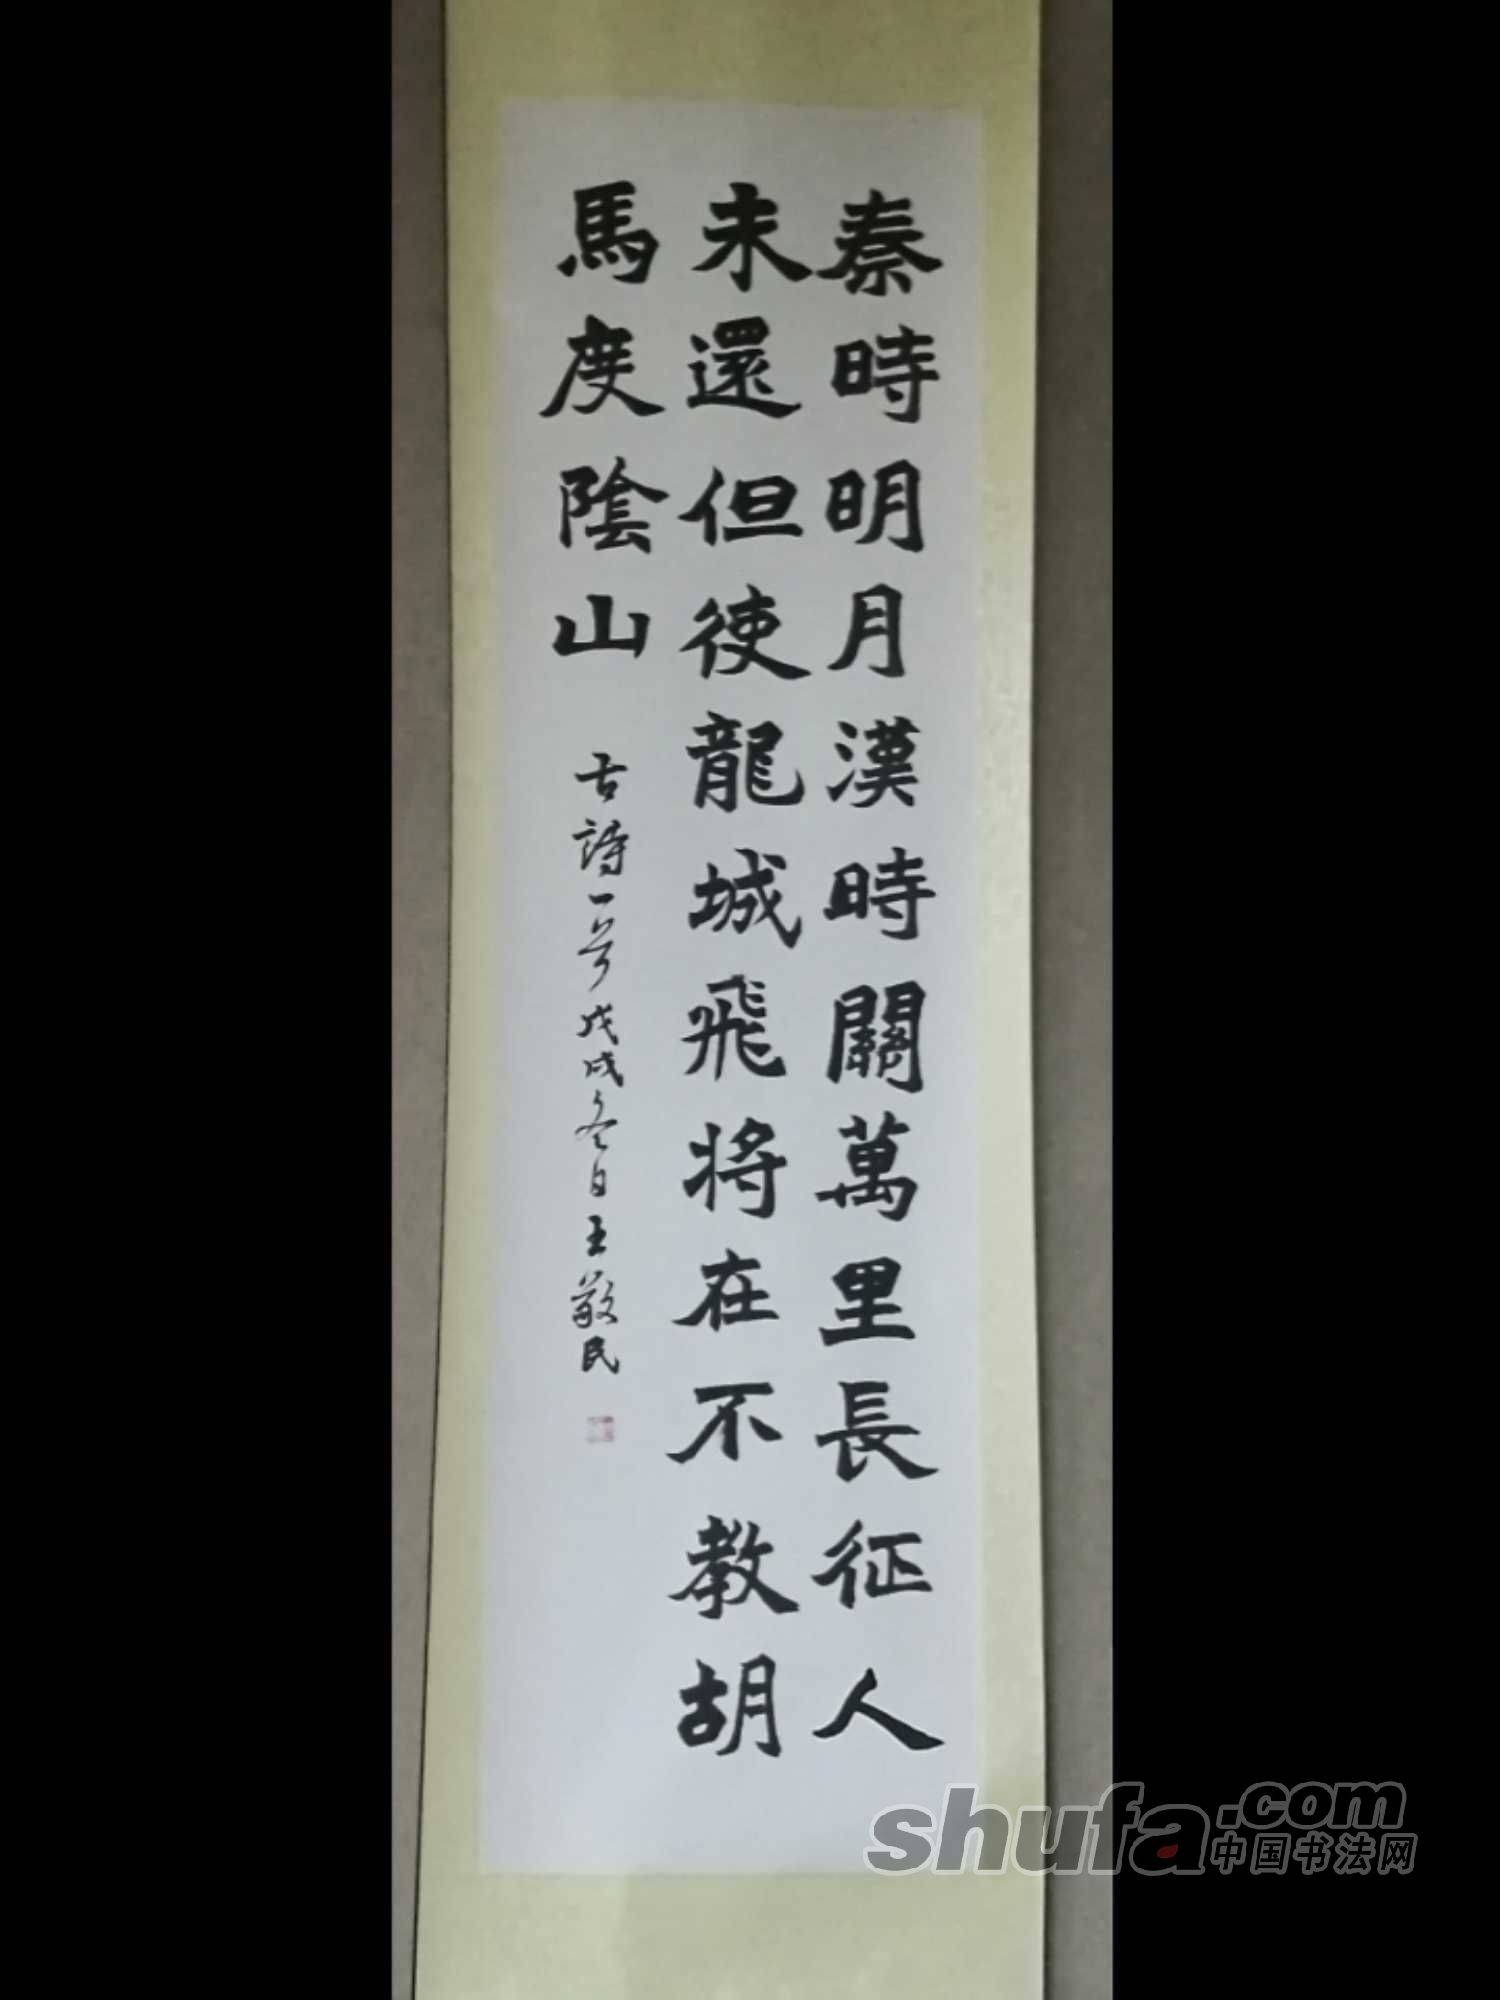 秦時明月漢時關萬里長征人
未還但使龍城飛將在不教胡
馬度陰山
古詩一首戊戌冬日王敬民
shufa.com
中国书法网